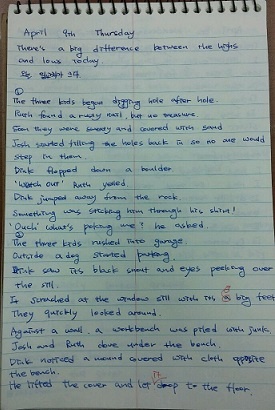 April 9th Thursday
There's a big difference between the highs
and lows today.
①
The three kids began digging hole after hole.
Ruth found a rusty nail but no treasure.
Soon they were sweaty and covered with sand
Josh started filling the holes back in so no one would
step in them
Dink flopped down a boulder.
'Watch out' Ruth yelled.
Dink jumped away from the rock.
Something was sticking him through his shirt!
'Ouch! what's poking me?' he asked.
②
The three kids rushed into garage
Outside a dog started barking.
Dink saw its black snout and eyes peeking over
the sill.
It scratched at the window sill with its big feet
They quickly looked around.
Against a wall, a workbench was piled with junk.
Josh and Ruth dove under the bench.
Dink noticed a mound covered with cloth opposite
the bench.
He lifted the cover and let it drop to the floor.